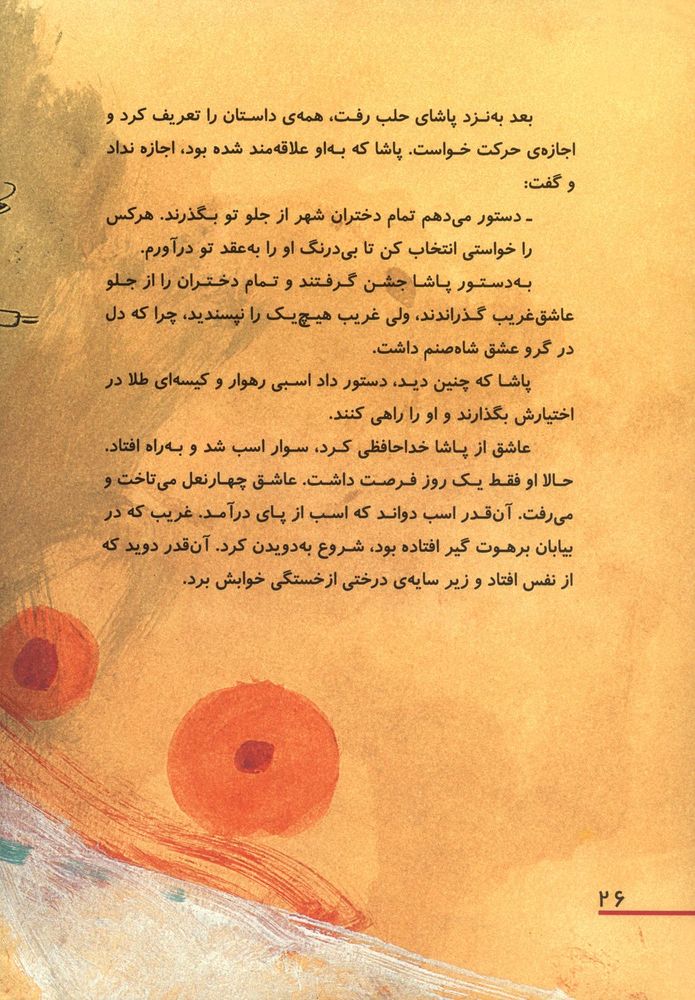 بعد به‌نزد پاشای حلب رفت، همه‌ی داستان را تعریف کرد و
اجازه‌ی حرکت خواست. پاشا که به‌او علاقه‌مند شده بود، اجازه نداد
و گفت:
ـ دستور می‌دهم تمام دختران شهر از جلو تو بگذرند. هرکس
را خواستی انتخاب کن تا بی‌درنگ او را به‌عقد تو درآورم.
به‌دستور پاشا جشن گرفتند و تمام دختران را از جلو
عاشق‌غریب گذراندند، ولی غریب هیچ‌یک را نپسندید، چرا که دل
در گرو عشق شاه‌صنم داشت.
پاشا که چنین دید، دستور داد اسبی رهوار و کیسه‌ای طلا در
اختیارش بگذارند و او را راهی کنند.
عاشق از پاشا خداحافظی کرد، سوار اسب شد و به‌راه افتاد.
حالا او فقط یک روز فرصت داشت. عاشق چهارنعل می‌تاخت و
می‌رفت. آن‌قدر اسب دواند که اسب از پای درآمد. غریب که در
بیابان برهوت گیر افتاده بود، شروع به‌دویدن کرد. آن‌قدر دوید که
از نفس افتاد و زیر سایه‌ی درختی ازخستگی خوابش برد.
۲۶